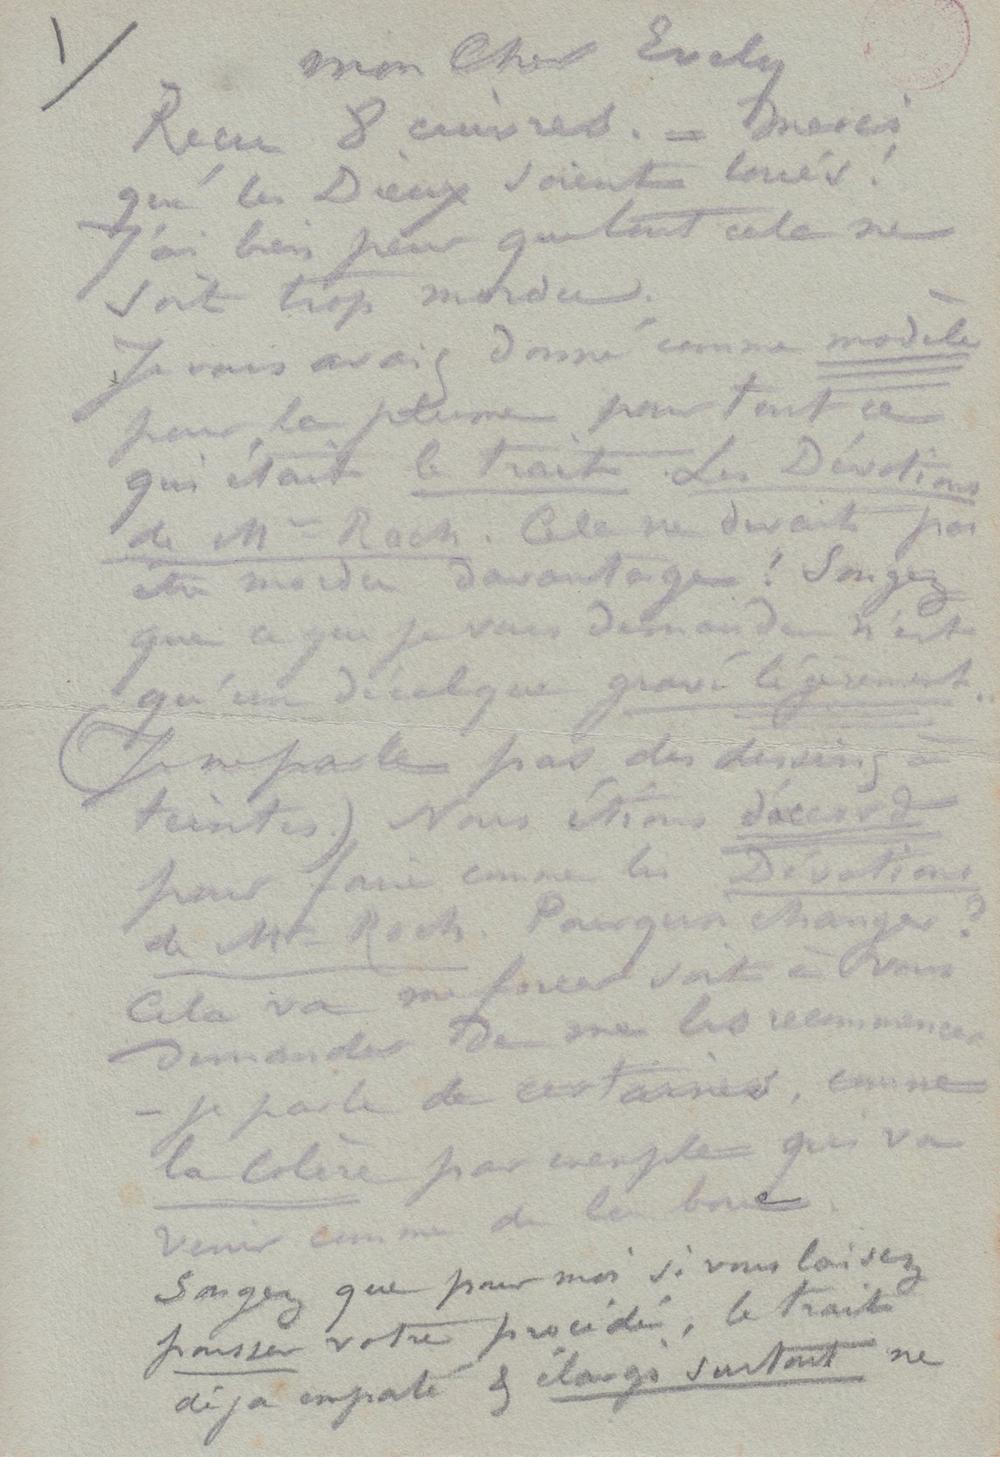 1/
mon Cher Evely
Recu 8 cuivres. = Merci
que les Dieux soient loués!
J'ai bien peur que tout cela ne
soit trop mordu.
Je vous avais donné comme modèle
pour la plume pour tout ce
qui était le trait Les Dévotions
de Mr Roch. Cela ne devait pas
être mordu davantage! Songez
que ce que je vous demande n'est
qu'un décalque gravé légèrement..
(Je ne parle pas des dessins à
teintes.) Nous étions d'accord
pour faire comme les Dévotions
de Mr Roch. Pourquoi changer?
Cela va me forcer soit à vous
demander de me les recommencer
- je parle de certaines, comme
la Colère par exemple qui va
venir comme de la boue.
Songez que pour moi si vous laisez
pousser votre procédé, le trait
déja empaté & élargi surtout ne